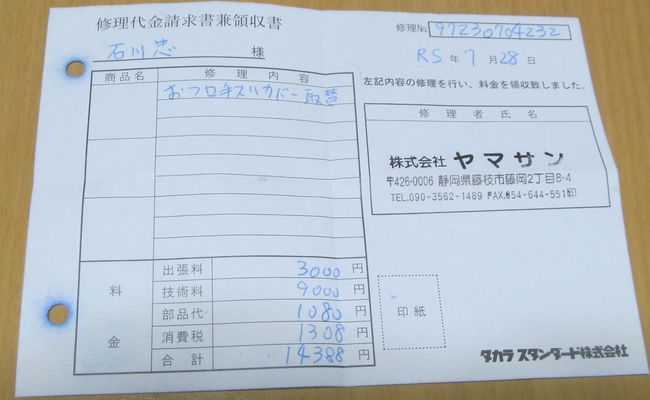 修理代金請求書兼領収書
修理No. 97230704232
石川 忠 様
R5年7月28日
左記内容の修理を行い、料金を領収致しました。
商品名 修理内容
おフロ手スリカバー取替
修理者氏名
株式会社 ヤマサン
〒426-0006 静岡県藤枝市藤岡2丁目8-4
TEL.090-3562-1489 FAX.054-644-551
印
料金
出張料 3000円
技術料 9000円
部品代 1080円
消費税 1308円
合計 14388円
印紙
タカラスタンダード株式会社